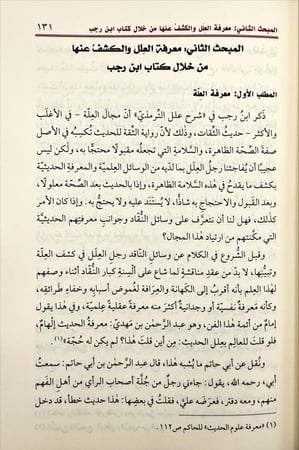 المبحث الثاني: معرفة العِلَل والكشفُ عنها من خلال كتاب ابن رجب ١٣١
المبحث الثاني: معرفة العِلل والكشفُ عنها
من خلال كتاب ابن رجب
المطلب الأول: معرفة العِلَّة
ذكر ابنُ رجب في «شرح علل الترمذيّ» أنّ مجالَ العِلّة – في الأغلَب
والأكثر – حديثُ الثّقات، وذلك لأنّ رواية الثقة للحديث تُكسِبُه في الأصل
صفةَ الصّحّة الظاهرة، والسلامةِ، والترقّي ليكون مقبولًا محتجًّا به، ولكن ليس
عجيبًا أن يُفاجئَنا رجلُ العِلَل بما لدَيه من الوسائل العِلميّة والمعرفة الحديثيّة
بكشف ما يقدحُ في هذه السلامة الظاهرة، وإذا بالحديث بعد الصّحّة معلولًا،
وبعد القبول والاحتجاج به شاذًّا، لا يُستنَد عليه ولا يحتجُّ به. وإذا كان الأمر
كذلك، فهل لنا أن نتعرَّف على وسائل النُّقاد وجوانبِ معرفتهم الحديثيّة
التي مكّنتهم من ارتياد هذا المجال؟
وقبل الشّروع في الكلام عن وسائل النّاقد رجلِ العِلل في كشف العلّة
وتبيُّنِها، لا بدّ من عقدِ مناقشةٍ لما شاع على ألسِنة كبار النُّقاد أثناء وصفهم
لهذا العِلم بأنه أقربُ إلى الكهانة والعِرافة لغموض أسبابِه وخفاءِ طرائقِه،
وكأنه مَعرفةٌ نفسيّة أو وجدانيةٌ أكثرَ منه معرفةً عقليةً عِلميّة، وفي هذا يقول
إمامٌ من أئمة هذا الفن، وهو عبد الرّحمٰن بن مَهديّ: معرفةُ الحديث إلهامٌ،
فلو قلتَ للعالِم بعِلل الحديث: مِن أين قلتَ هذا؟ لم يكن له حُجّة»(١).
ونُقل عن أبي حاتم ما يُشبه هذا، قال عبد الرحمٰن بن أبي حاتم: سمعتُ
أبي، رحمه الله، يقول: جاءني رجلٌ من جُلّة أصحاب الرأي من أهل الفَهم
منهم، ومعه دفتر، فعَرَضه عليّ، فقلتُ في بعضِها: هذا حديث خطأ، قد دخل
(١) «معرفة علوم الحديث» للحاكم ص١١٢.